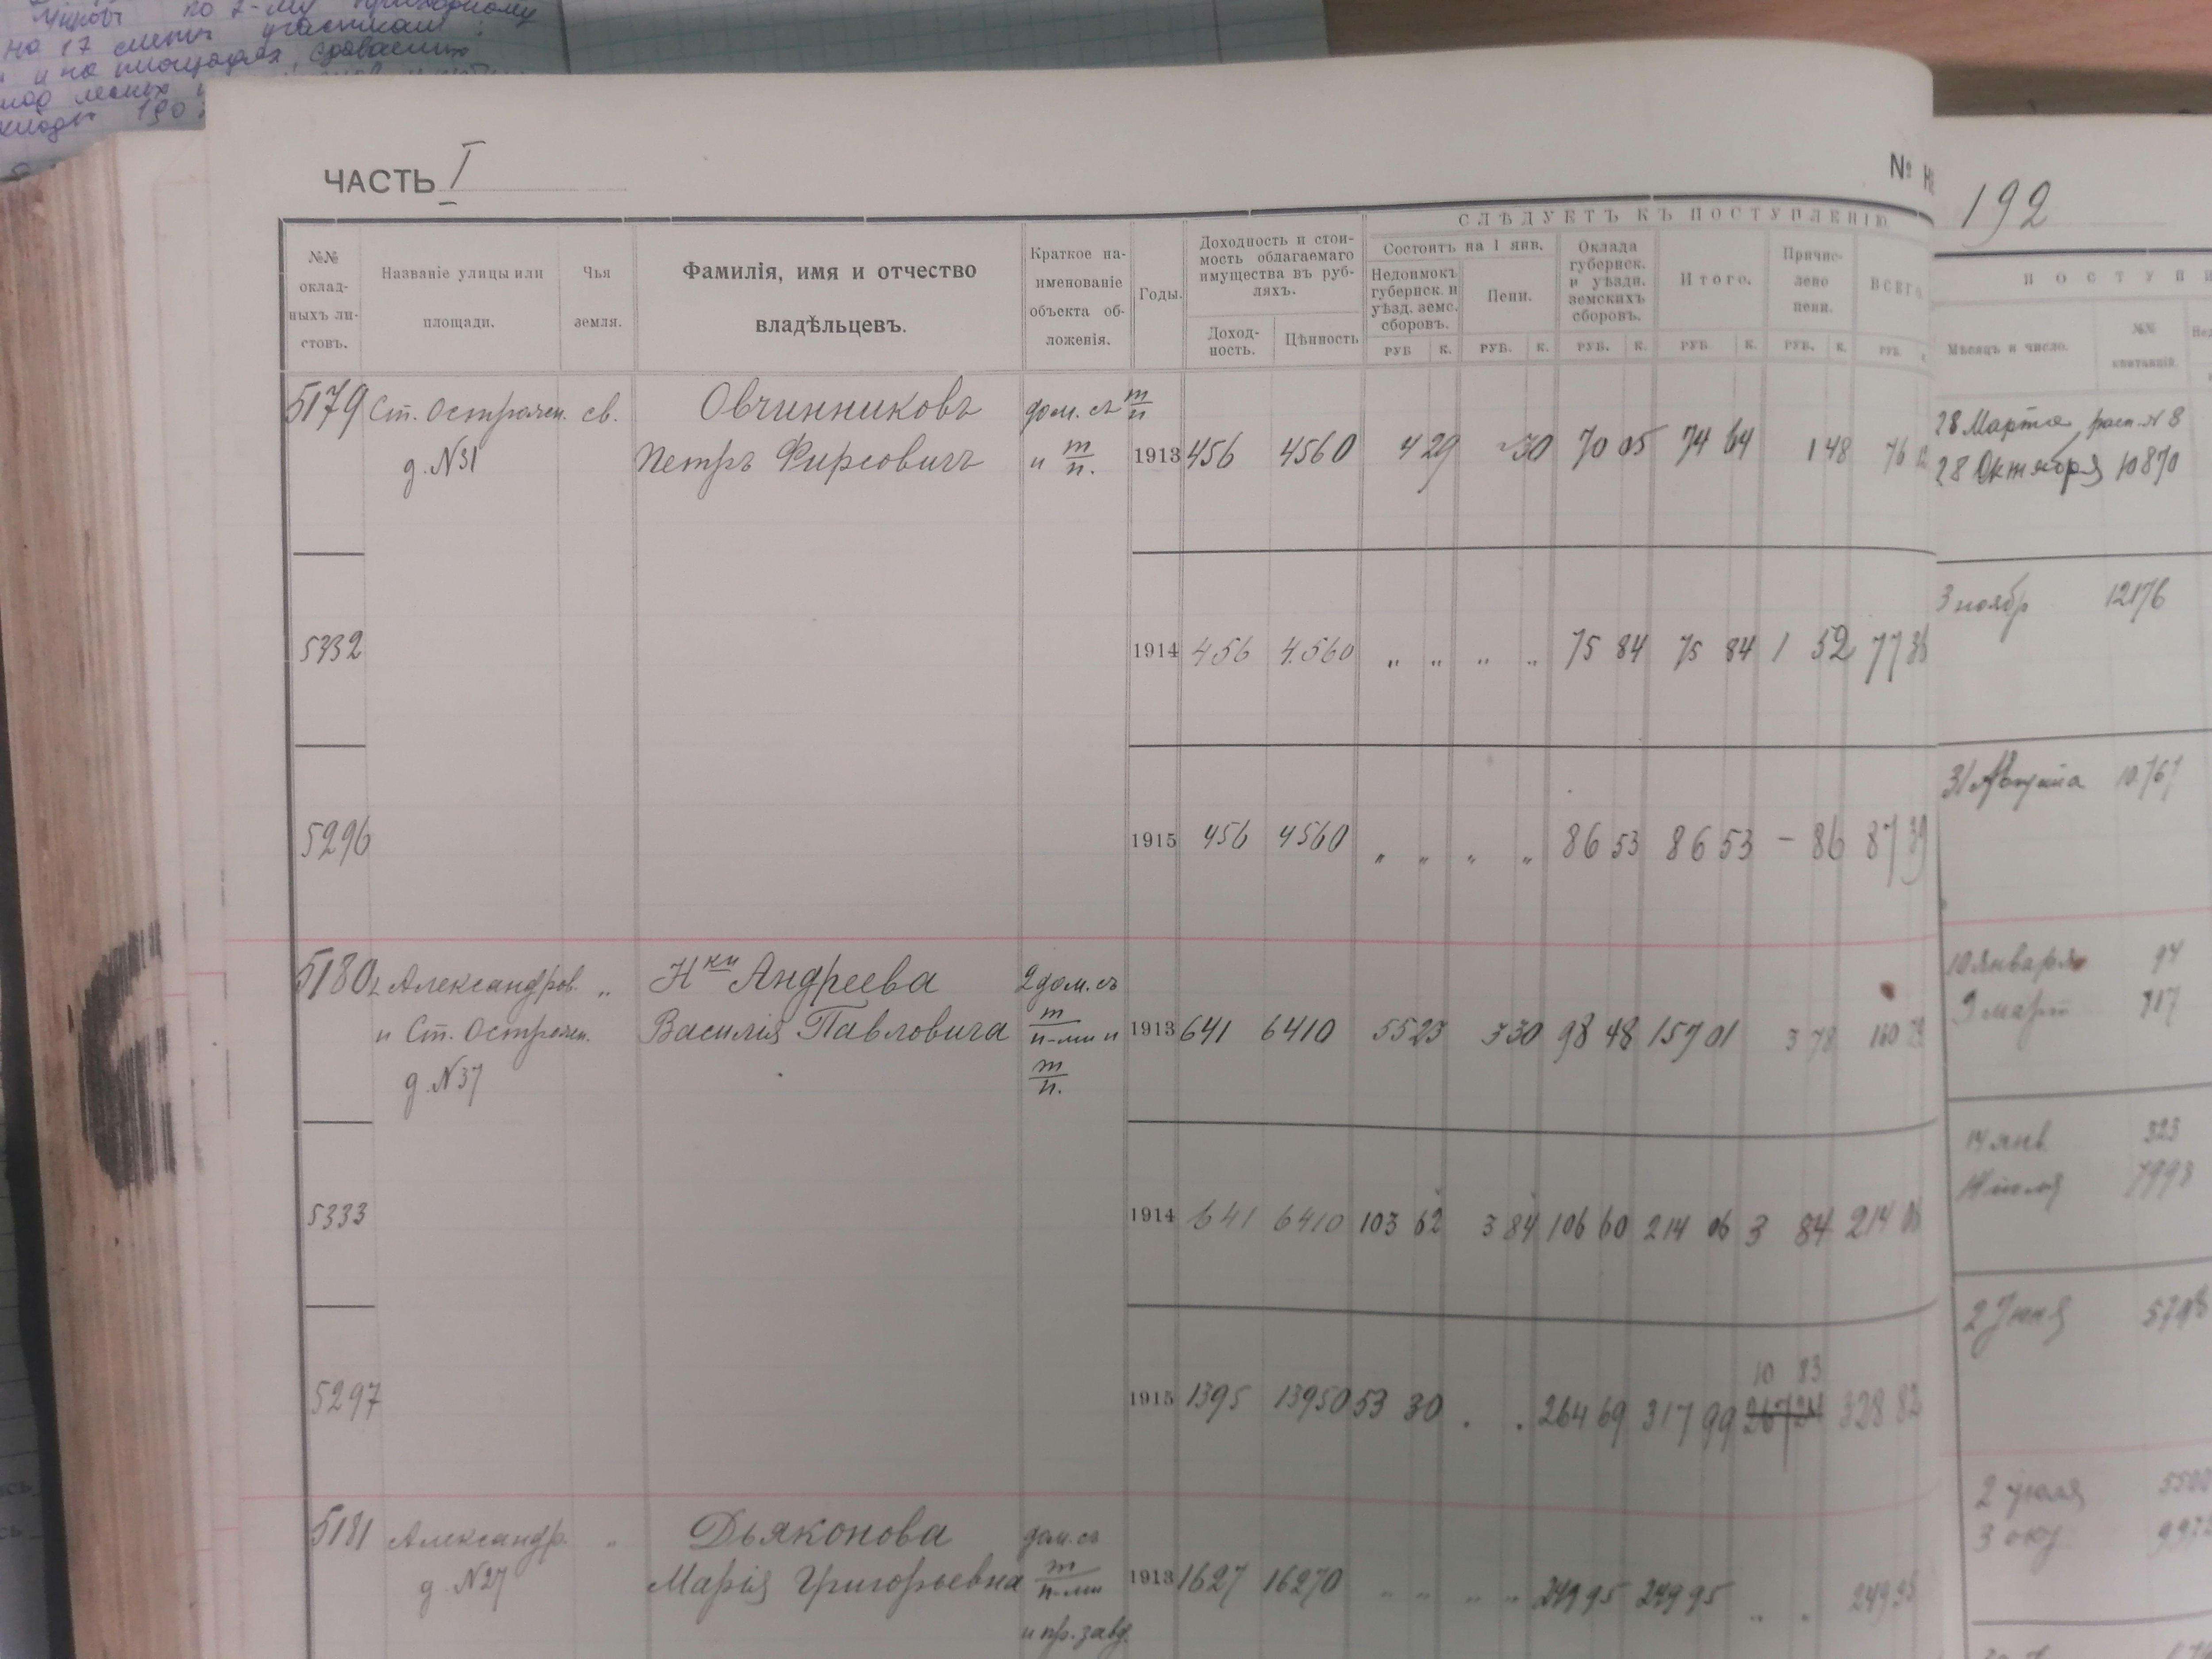 на 17 смета участкам
и на площадях, сравнению
ЧАСТЬ I
№
192
№№ оклад-ныхъ ли-стовъ.
Названіе улицы или площади.
Чья земля.
Фамилія, имя и отчество владѣльцевъ.
Краткое на-именованіе объекта об-ложенія.
Годы.
Доходность и стои-мость облагаемаго имущества въ руб-ляхъ.
Доход-ность.
Цѣнность
СЛѢДУЕТЪ КЪ ПОСТУПЛЕНІЮ
Состоитъ на 1 янв.
Недоимокъ губернск. и уѣзд. земс. сборовъ.
Пени.
Оклада губернск. и уѣздн. земскихъ сборовъ.
Итого.
Причис-лено пени.
ВСЕГО
РУБ К. РУБ. К. РУБ. К. РУБ К. РУБ. К. РУБ.
ПОСТУПИ
Мѣсяцъ и число.
№№ квитанцій.
5179 Ст. Острожн. св. Овчинниковъ дом. съ т/п
д. №31 Петръ Фирсовичъ и т/п. 1913 456 4560 4 29 30 70 05 74 64 1 48 76
28 Марта
28 Октября 10870
5332 1914 456 4560 „ „ „ „ 75 84 75 84 1 52 77 36
3 ноябр 12176
5296 1915 456 4560 „ „ „ „ 86 53 86 53 – 86 87 39
31 Августа 10767
5180 Александров. „ Н-ки Андреева 2 дом. съ
и Ст. Острожн. Василія Павловича т/п-ми и 1913 641 6410 55 23 3 30 98 48 157 01 3 78 160
д. №37 т/п.
10 Января 94
9 март 717
5333 1914 641 6410 103 62 3 84 106 60 214 06 3 84 214 06
14 янв 323
14 июля 7993
10 83
5297 1915 1395 13950 53 30 . . 264 69 317 99 267 24 328 82
2 Июня
5181 Александр. „ Дьяконова дом. съ
д. №27 Марія Григорьевна т/п-ми 1913 1627 16270 „ „ „ „ 249 95 249 95 „ „ 249 95
и пр. завд.
2 июля
3 окт